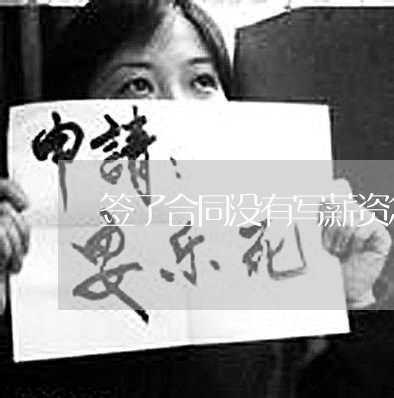 申請：
签了合同没有写薪资
乐死